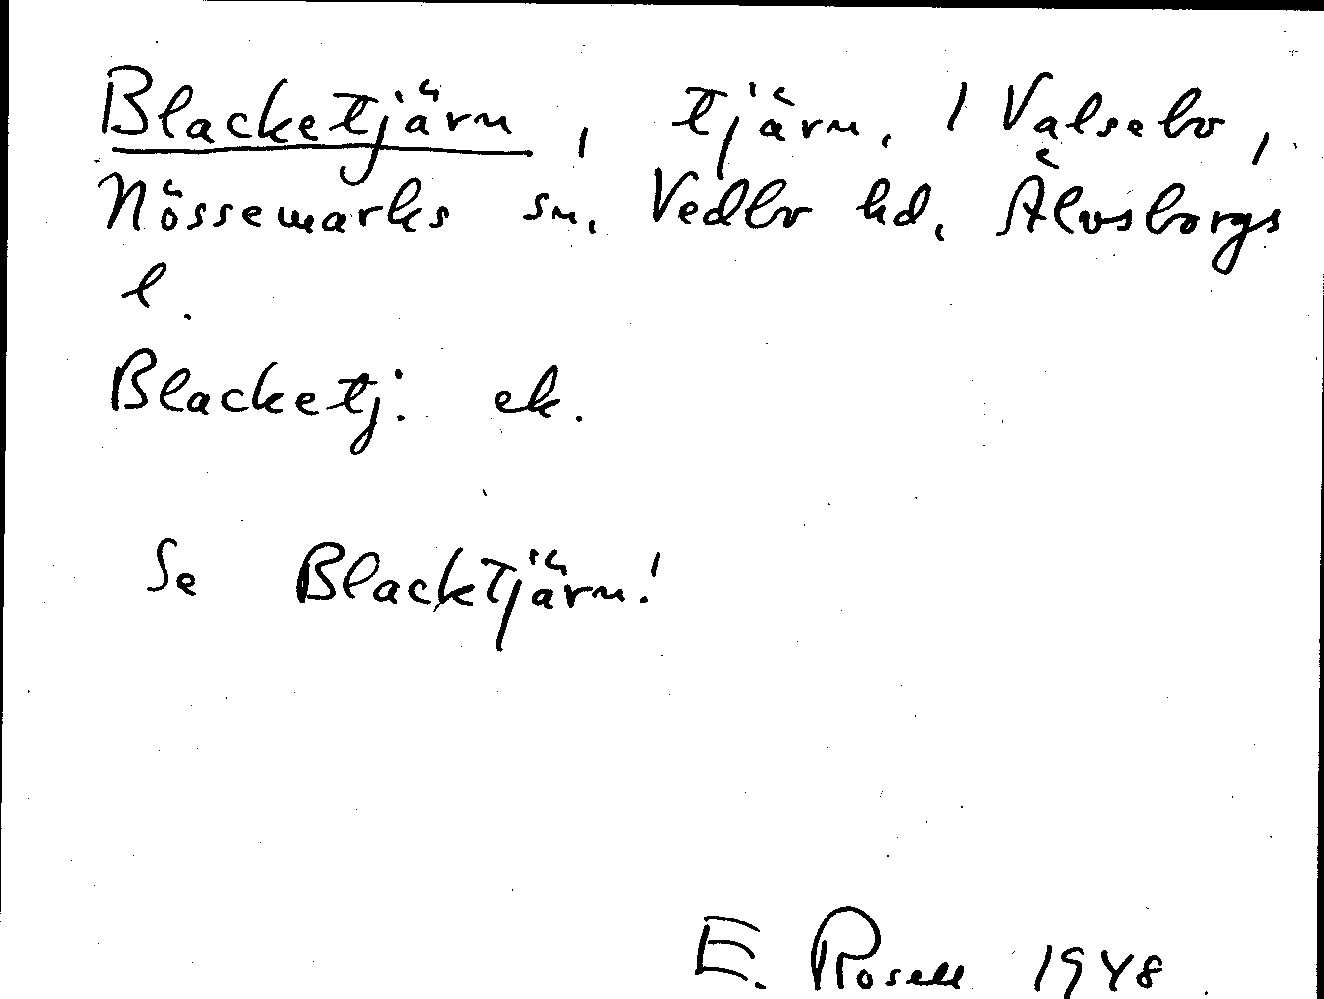 Blacketjärn, tjärn. I Valsebo,
Nössemarks sn. Vedbo hd. Älvsborgs
l.
Blacketj: ek.
Se Blacktjärn!
E. Rosell 1948